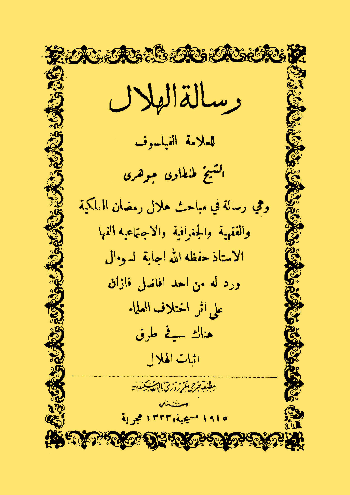 رسالة الهلال
للعلامة الفيلسوف
الشيخ طنطاوى جوهرى
وهي رسالة في مباحث هلال رمضان الفلكية
والفقهية والجغرافية والاجتماعية الفها
الاستاذ حفظه الله اجابة لسؤال
ورد له من احد افاضل قازان
على اثر اختلاف العلماء
هناك في طرق
اثبات الهلال
١٩١٥ مسيحية، ١٣٣٣ هجرية